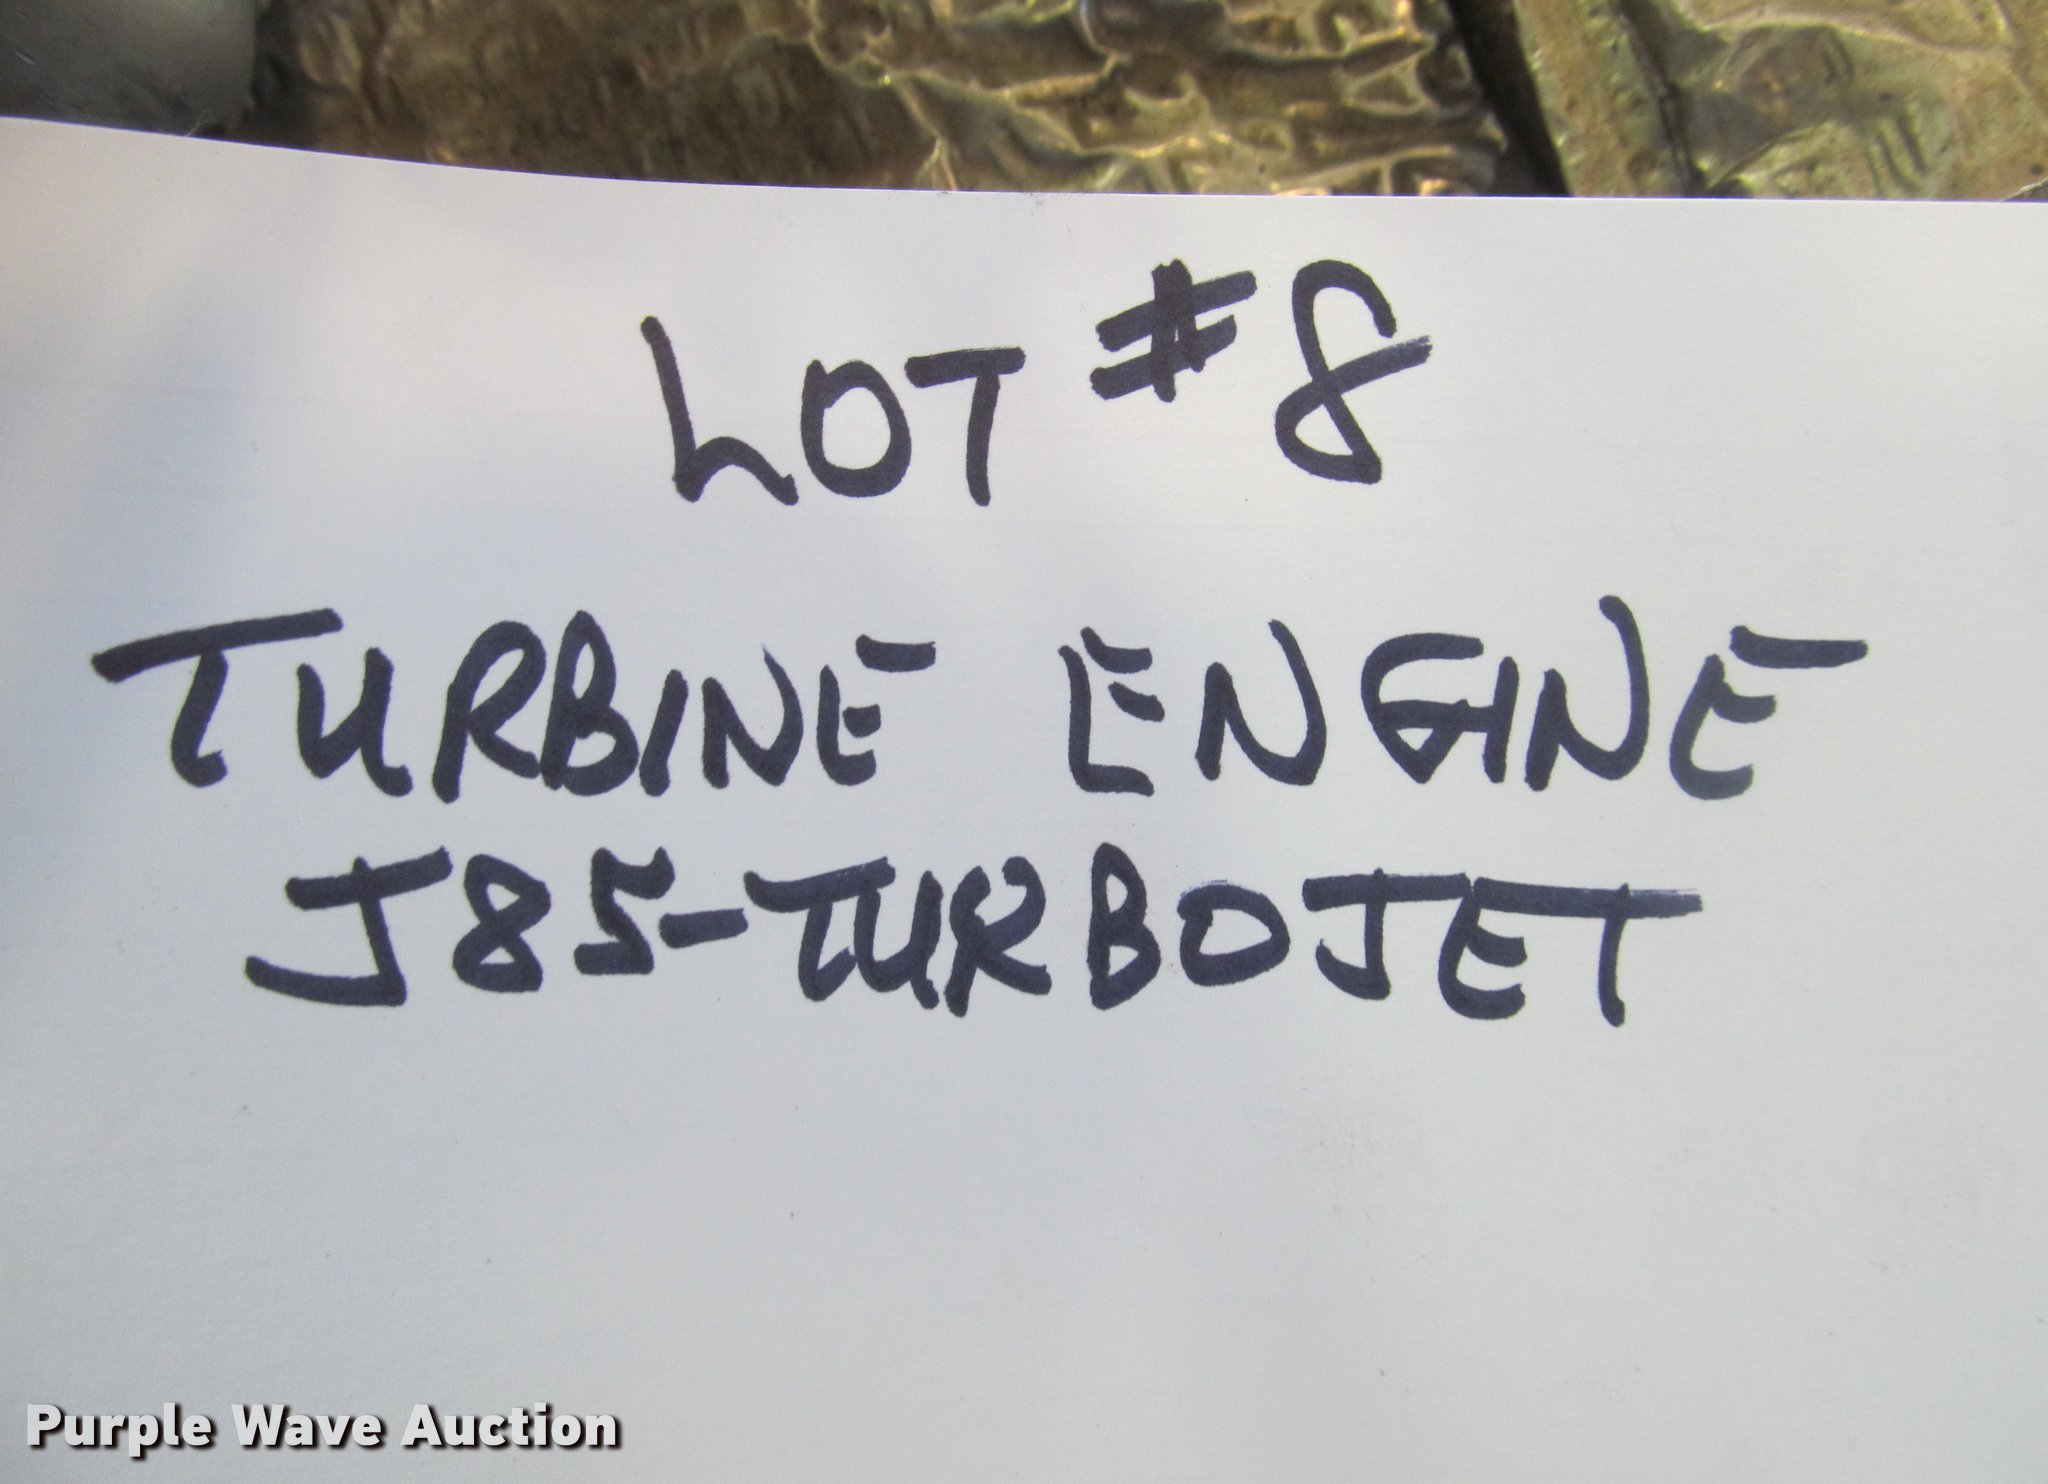 LOT #8
TURBINE ENGINE
J85-TURBOJET
Purple Wave Auction